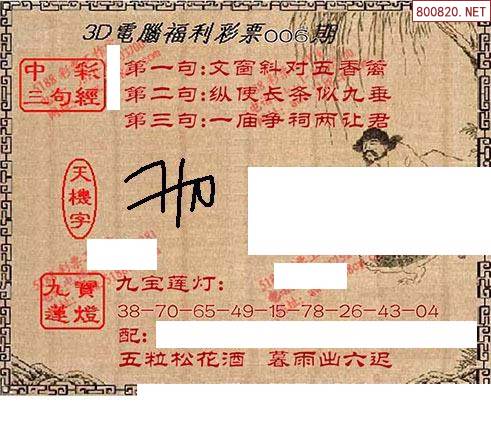 800820.NET
3D電腦福利彩票006期
中彩
三句經
第一句:文窗斜对五香篱
第二句:纵使长条似九垂
第三句:一庙争祠两让君
天機字
九寶
蓮燈
九宝莲灯:
38-70-65-49-15-78-26-43-04
配:
五粒松花酒 暮雨出六迟